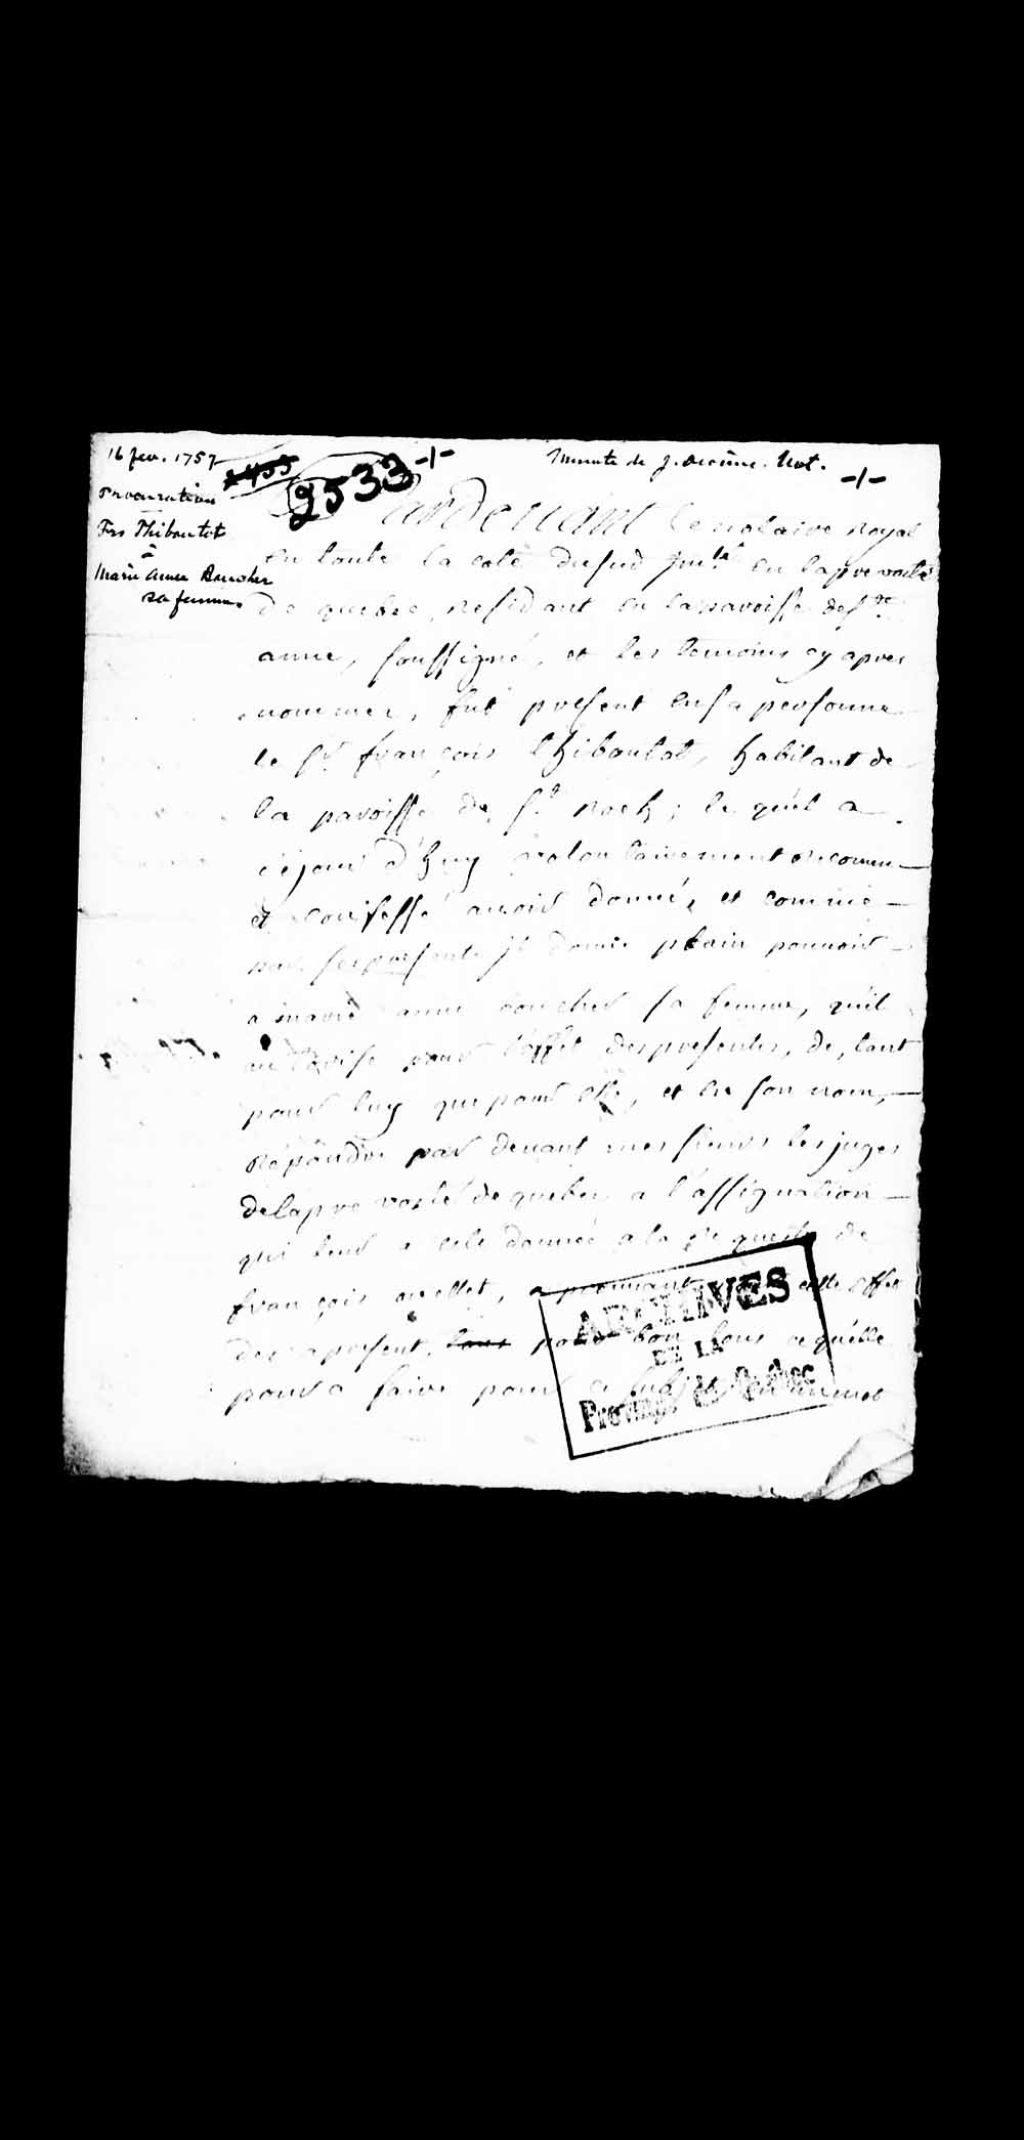 16 fev. 1757
2533 -/-
Minute de J. Dionne. Not.
-/-
Procuration
Frs Thiboutot
à
Marie Anne Boucher
sa femme
Pardevant le notaire Royal
en toute la cote dusud juri.té en laprevosté
de quebec, residant en laparoisse de s.te
anne, soussigné, et les temoins cy apres
nommer, fut present ensa personne
le s.r françois thiboutot, habitant de
la paroisse de s.t Roch; le quel a
cejour d'huy volontairement reconnu
et confessé avoir donné, et comme
par ses presente jl donne plain pouvoir
a marie anne boucher sa femme, quil
autorise pour l'effet despresentes, de, tant
pour luy que pour elle, et en son nom,
Répondre par devant messieurs les juges
delaprevosté de quebec a l'assignation
qui leur a esté donnée a la Requeste de
françois ouellet, a prouvant cette effet
des apresent pour bon tous cequelle
poura faire pour
ARCHIVES
DE LA
Province de Québec